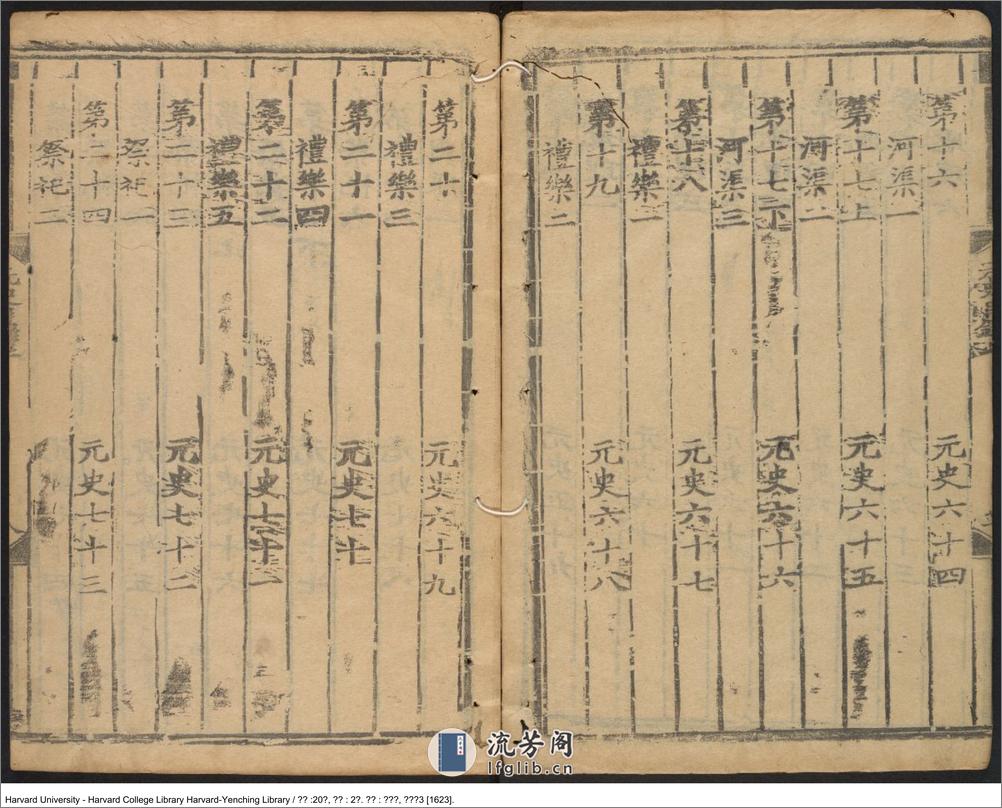 第十六 元史六十四
河渠一
第十七上 元史六十五
河渠二
第十七之下 元史六十六
河渠三
第十八 元史六十七
禮樂一
第十九 元史六十八
禮樂二
第二十 元史六十九
禮樂三
第二十一 元史七十
禮樂四
第二十二 元史七十一
禮樂五
第二十三 元史七十二
祭祀一
第二十四 元史七十三
祭祀二
流芳阁
lfglib.cn
Harvard University - Harvard College Library Harvard-Yenching Library / ?? :20?, ?? : 2?. ?? : ???, ???3 [1623].